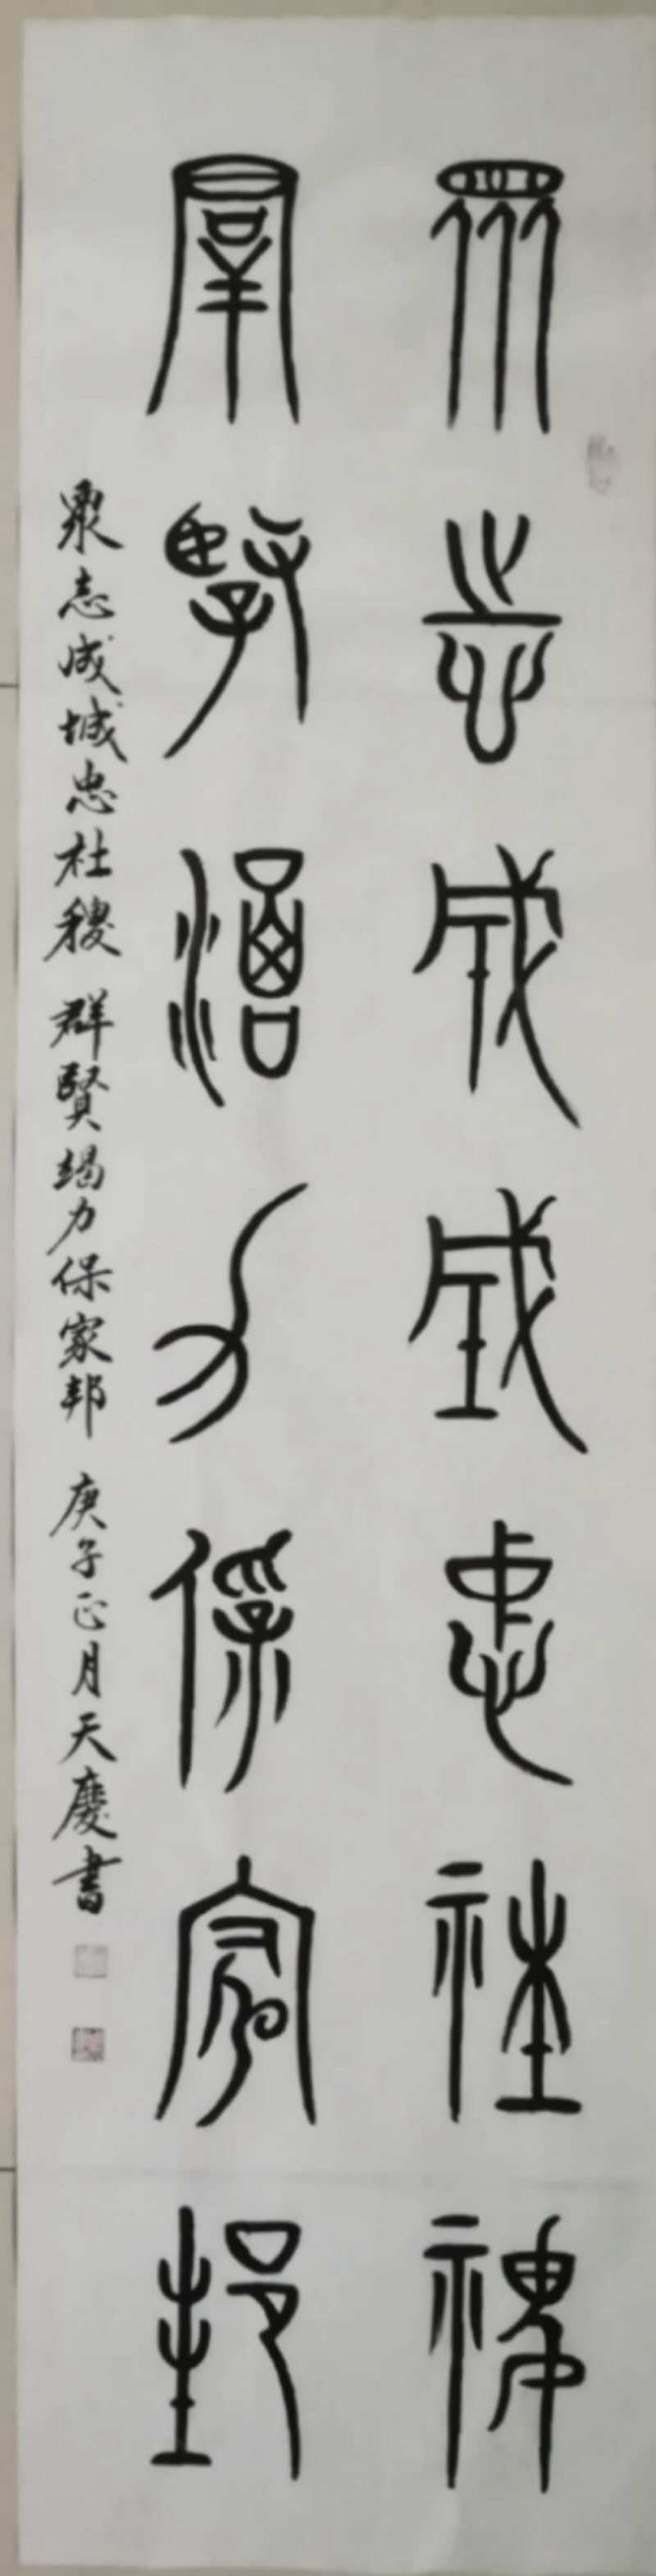 眾志成城忠社稷
群賢竭力保家邦
眾志成城忠社稷 群賢竭力保家邦 庚子正月天慶書